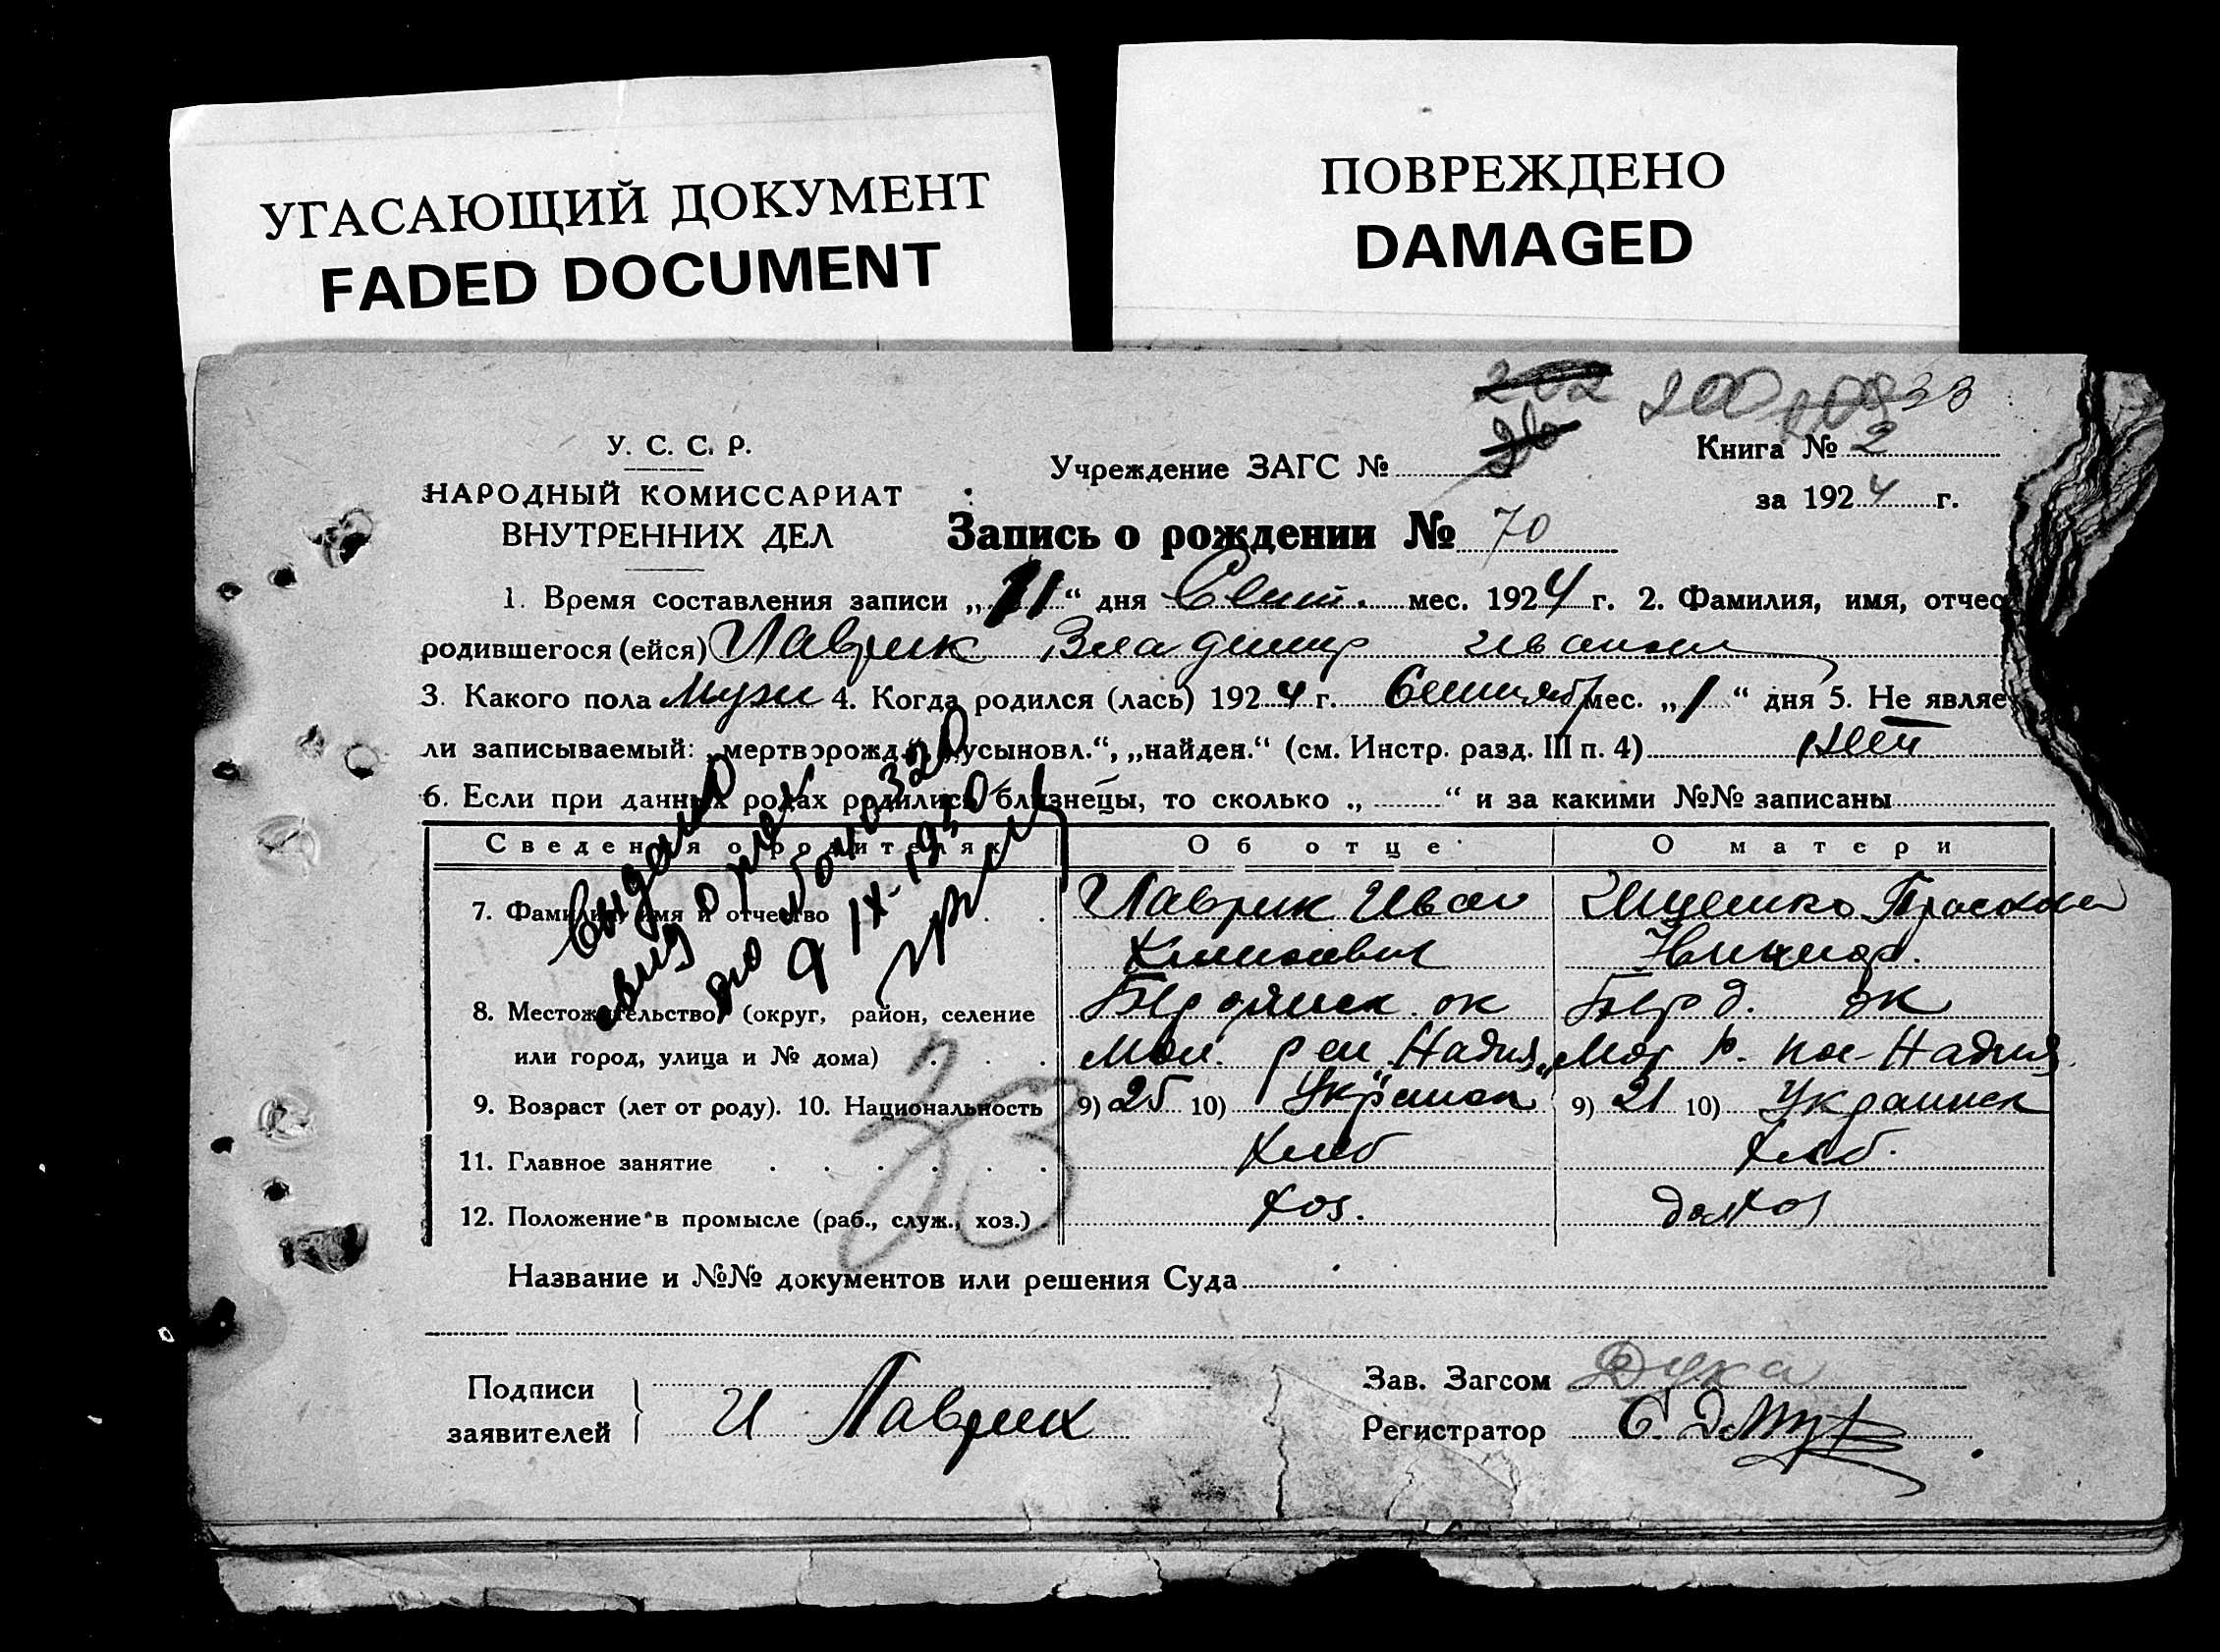 УГАСАЮЩИЙ ДОКУМЕНТ
FADED DOCUMENT
ПОВРЕЖДЕНО
DAMAGED
202 200 33
У. С. С. Р.
НАРОДНЫЙ КОМИССАРИАТ
ВНУТРЕННИХ ДЕЛ
Учреждение ЗАГС №
Книга № 2
за 1924 г.
Запись о рождении № 70
1. Время составления записи „11“ дня Сент. мес. 1924 г. 2. Фамилия, имя, отчес
родившегося (ейся) Лаврик Владимир
3. Какого пола Муж 4. Когда родился (лась) 1924 г. Сентябр мес. „1“ дня 5. Не являе
ли записываемый: „мертворожд.“, „усыновл.“, „найден.“ (см. Инстр. разд. III п. 4) нет
6. Если при данных родах родились близнецы, то сколько „ “ и за какими №№ записаны
Сведения о родителях
Об отце
О матери
7. Фамилия, имя и отчество
Лаврик Иван
Ищенко
8. Местожительство (округ, район, селение
или город, улица и № дома)
Бердянск ок
Берд. ок
рай. Надия
Надия
9. Возраст (лет от роду). 10. Национальность
9) 25 10) Украин
9) 21 10) Украинск
11. Главное занятие
Хлеб
Хлеб.
12. Положение в промысле (раб., служ., хоз.)
Хоз.
домхоз
Выдано
9 IX-1950
23
Название и №№ документов или решения Суда
Подписи
заявителей
И Лаврик
Зав. Загсом Дука
Регистратор С.